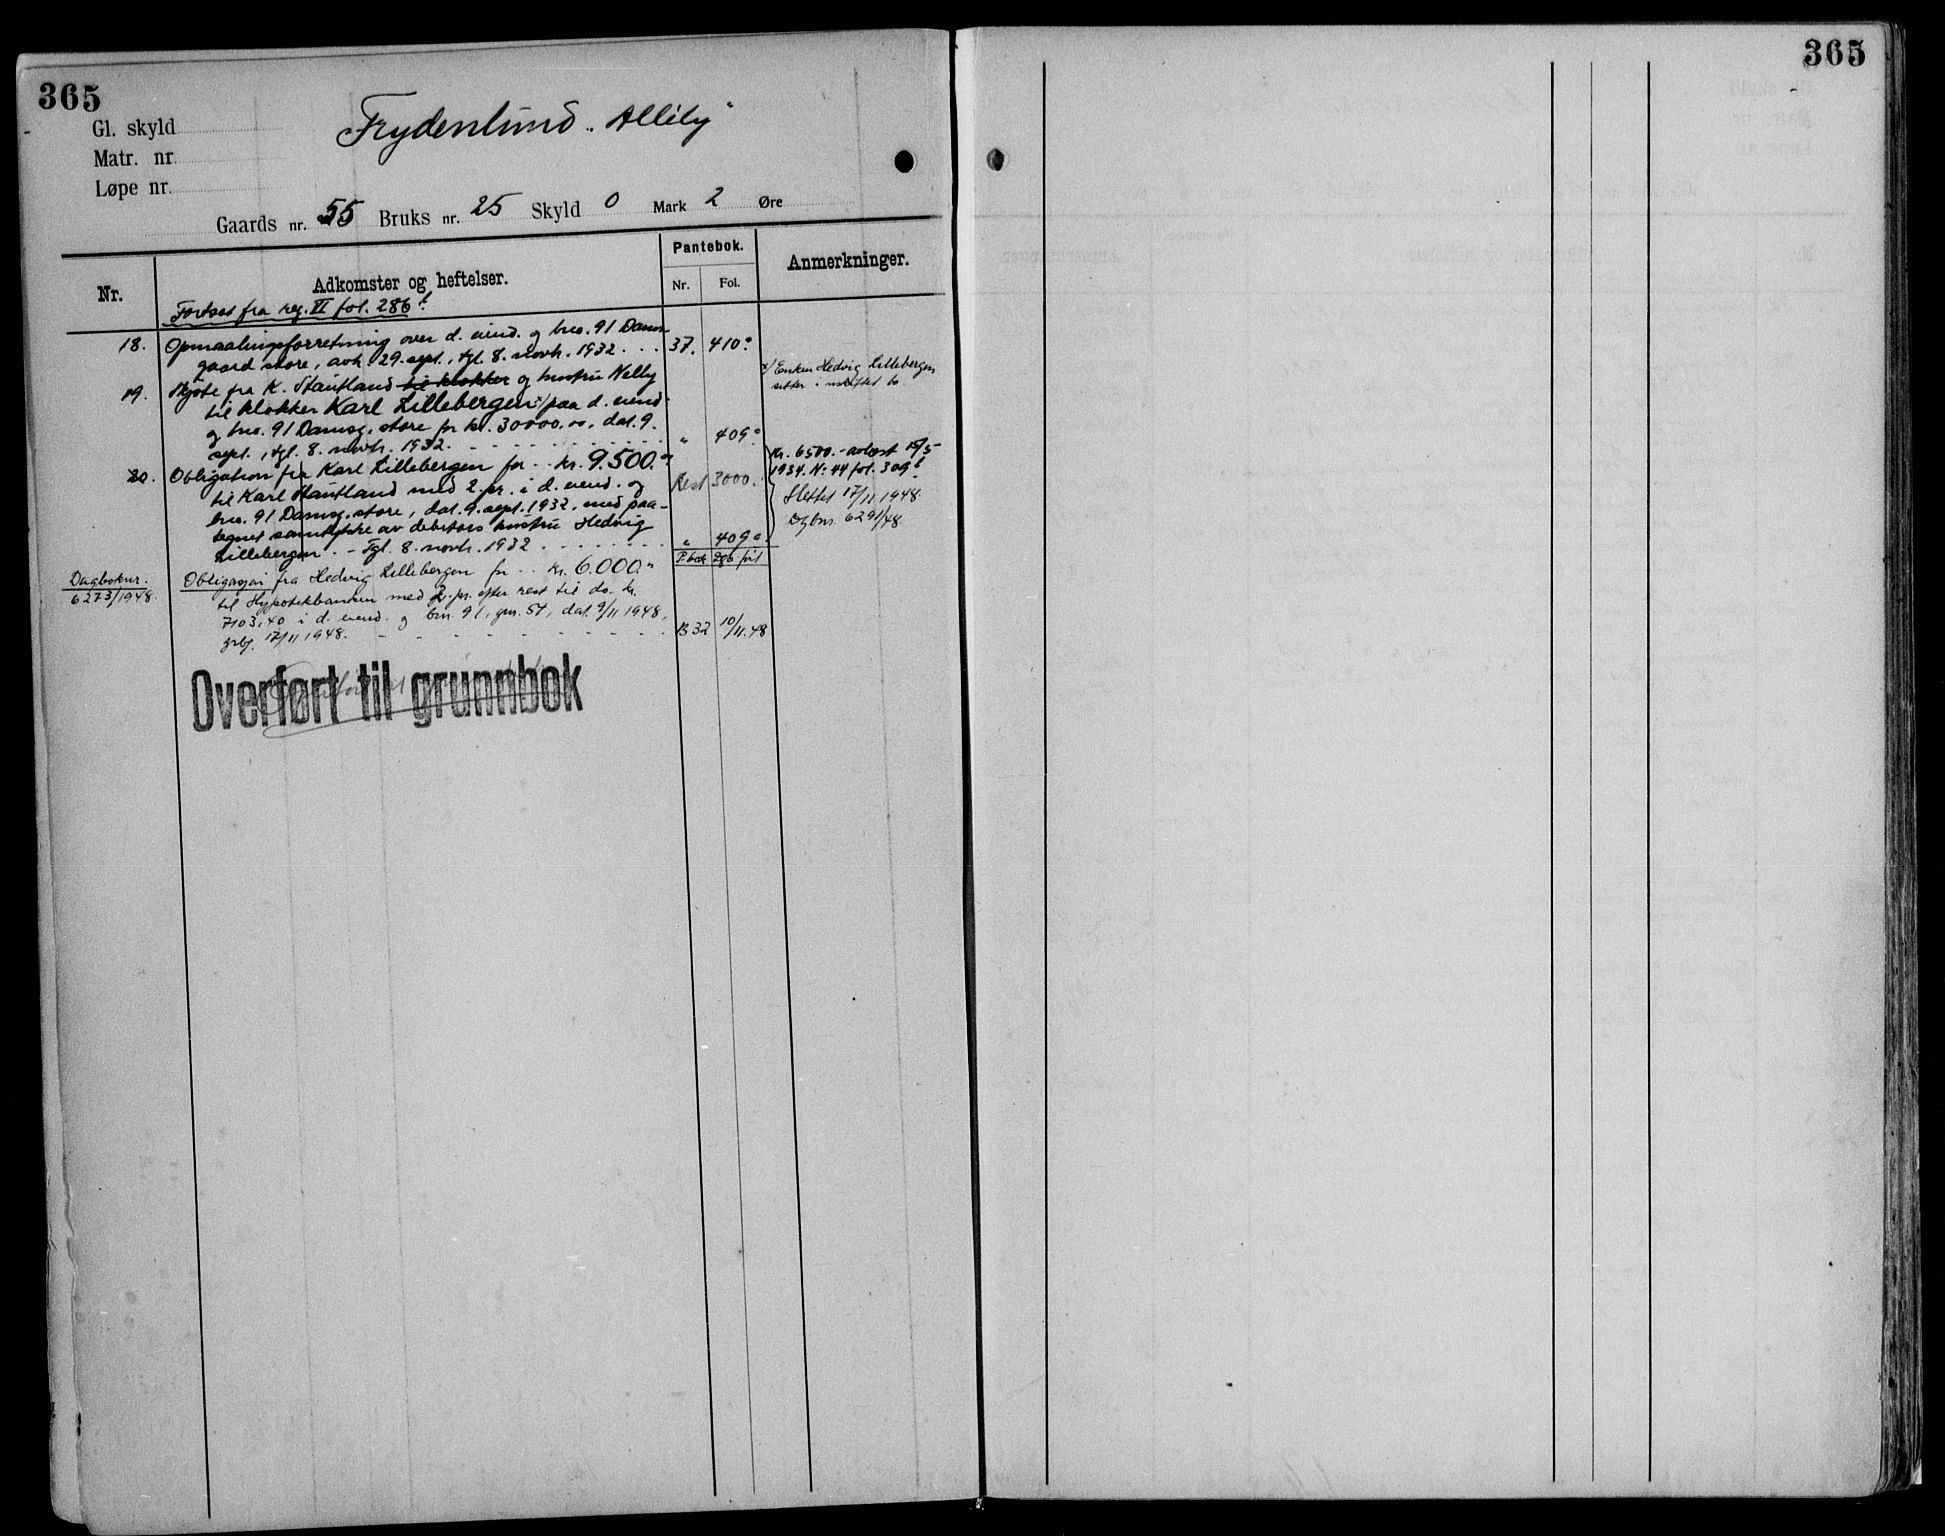 365
Gl. skyld
Matr. nr.
Løpe nr.
Frydenlund „Allily"
Gaards nr. 55 Bruks nr. 25 Skyld 0 Mark 2 Øre
Nr. Adkomster og heftelser. Pantebok. Anmerkninger.
Nr. Fol.
Fortsat fra reg. VI fol. 286 b.
18. Opmaalingsforretning over d. eiend. og bno. 91 Dams-
gaard store, avh. 29. sept., tgl. 8. novb. 1932 . . . 37. 410 a
19. Skjøte fra K. Stautland til klokker og hustru Nelly
til klokker Karl Lillebergen x) paa d. eiend.
og bno. 91 Damsg. store for kr. 30000.00, dat. 9.
sept., tgl. 8. novb. 1932. „ 409 a
x) Enken Hedvig Lillebergen
sitter i uskiftet bo.
20. Obligation fra Karl Lillebergen for kr. 9.500."
til Karl Stautland med 2. pr. i d. eiend. og Rest 3000.
bno. 91 Damsg. store, dat. 9. sept. 1932, med paa-
tegnet samtykke av debitors hustru Hedvig
Lillebergen. - Tgl. 8. novb. 1932 „ 409 a
Kr. 6500.- avlæst 15/5
1934. N: 44 fol. 309 b
Slettet 17/11 1948.
Dgbnr. 6291/48
P.bok Dgb. ført
Dagboknr.
6273/1948.
Obligasjon fra Hedvig Lillebergen for kr. 6.000."
til Hypotekbanken med 2. pr. efter rest til do. kr.
7103,40 i d. eiend. og bnr. 91, gnr. 51, dat. 9/11 1948,
17/11 1948. B 32 10/11.48
Overført til grunnbok
365